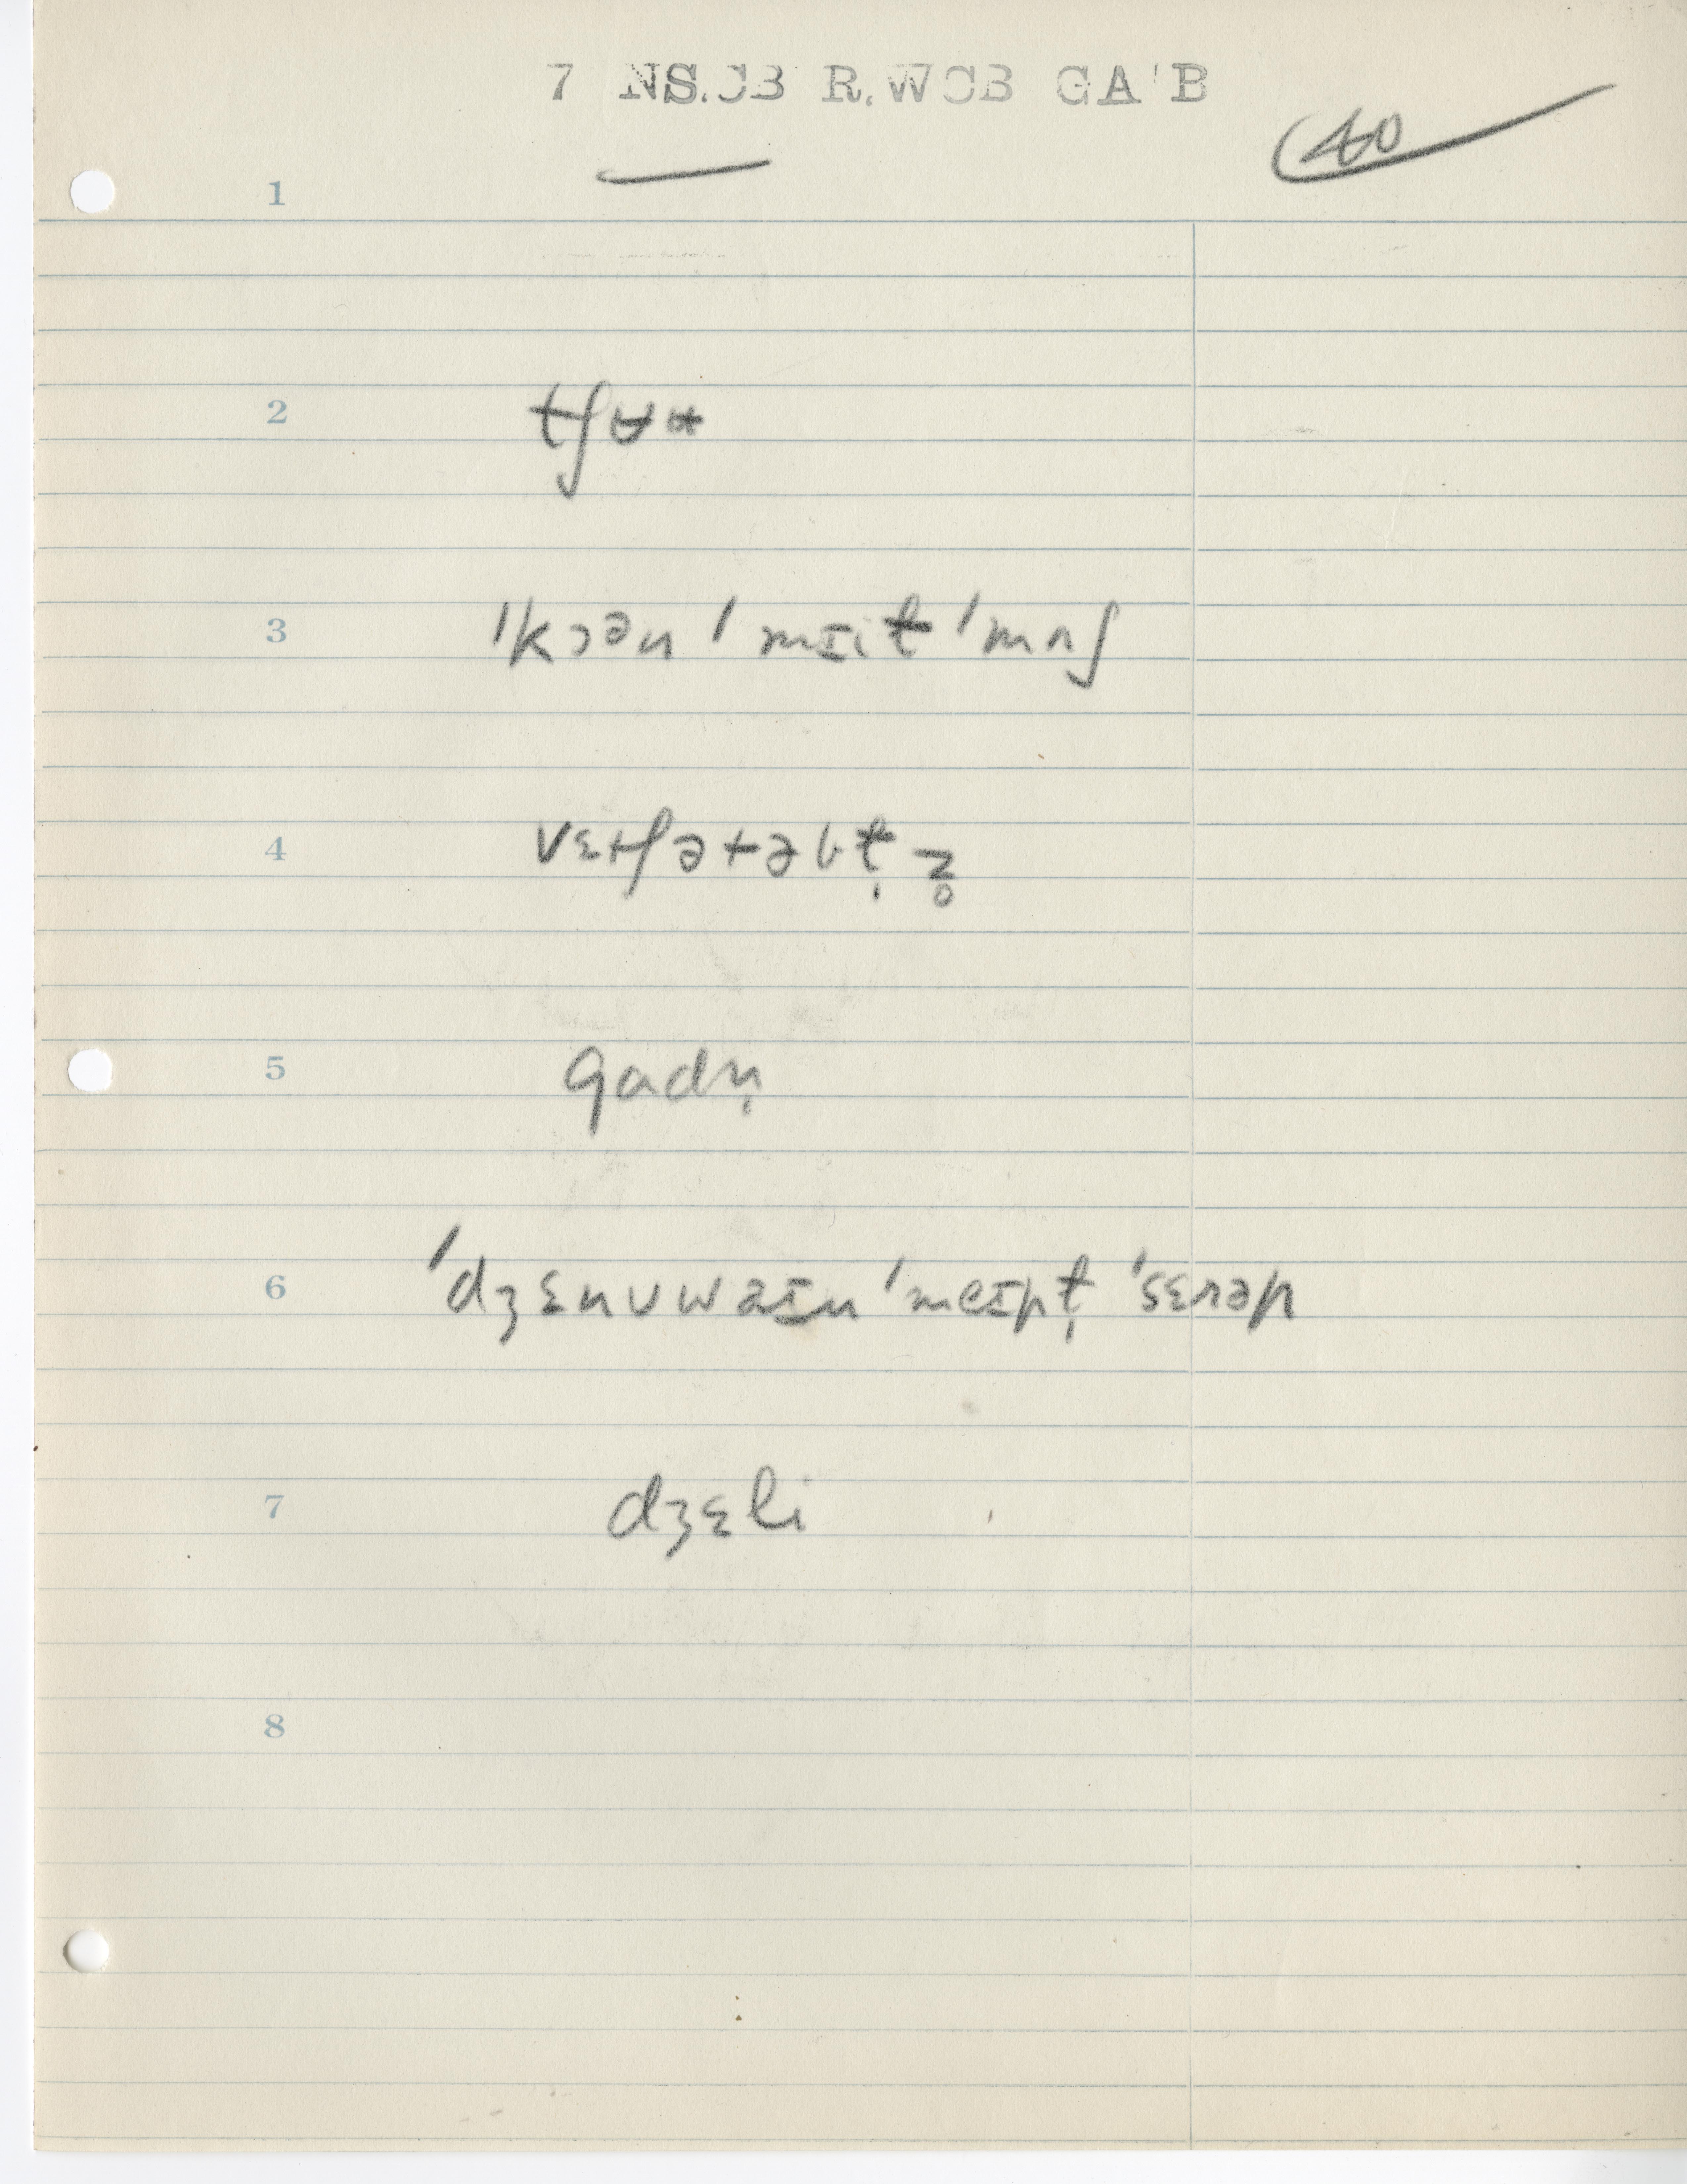 7 NS.CB R.WCB GA'B
40
1
2 tʃʉɑ
3 ˈkɔən ˈmɪit ˈmʌʃ
4 vɛtʃətəbt̩ z̥
5 gadn̩
6 ˈdʒɛnuwaɪn ˈmeɪpt̩ ˈsɛrəp
7 dʒɛli
8